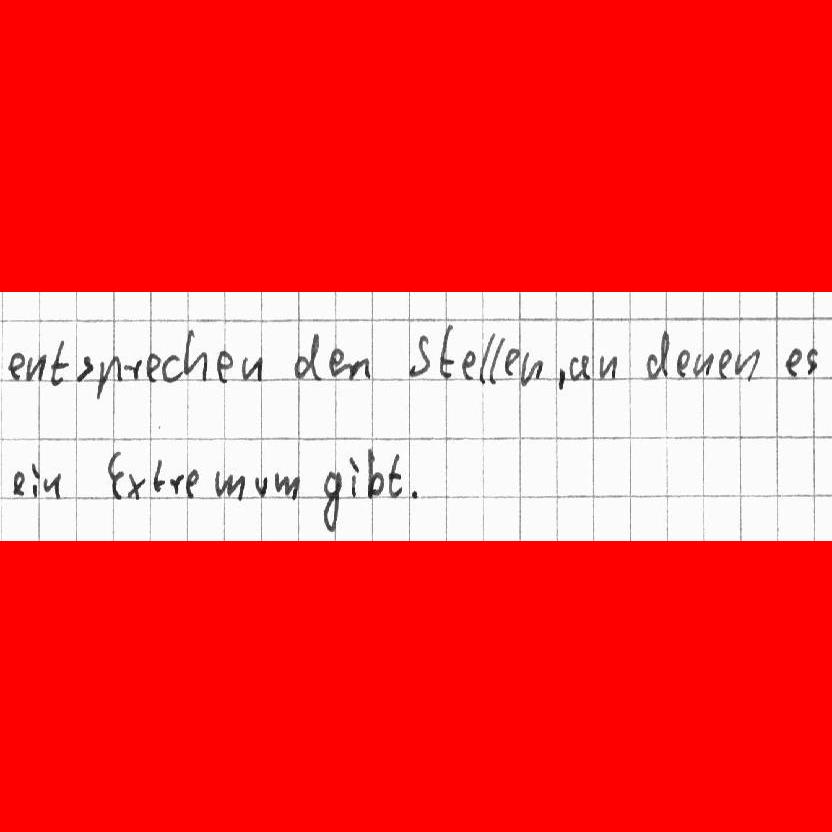 entsprechen den Stellen, an denen es
ein Extremum gibt.